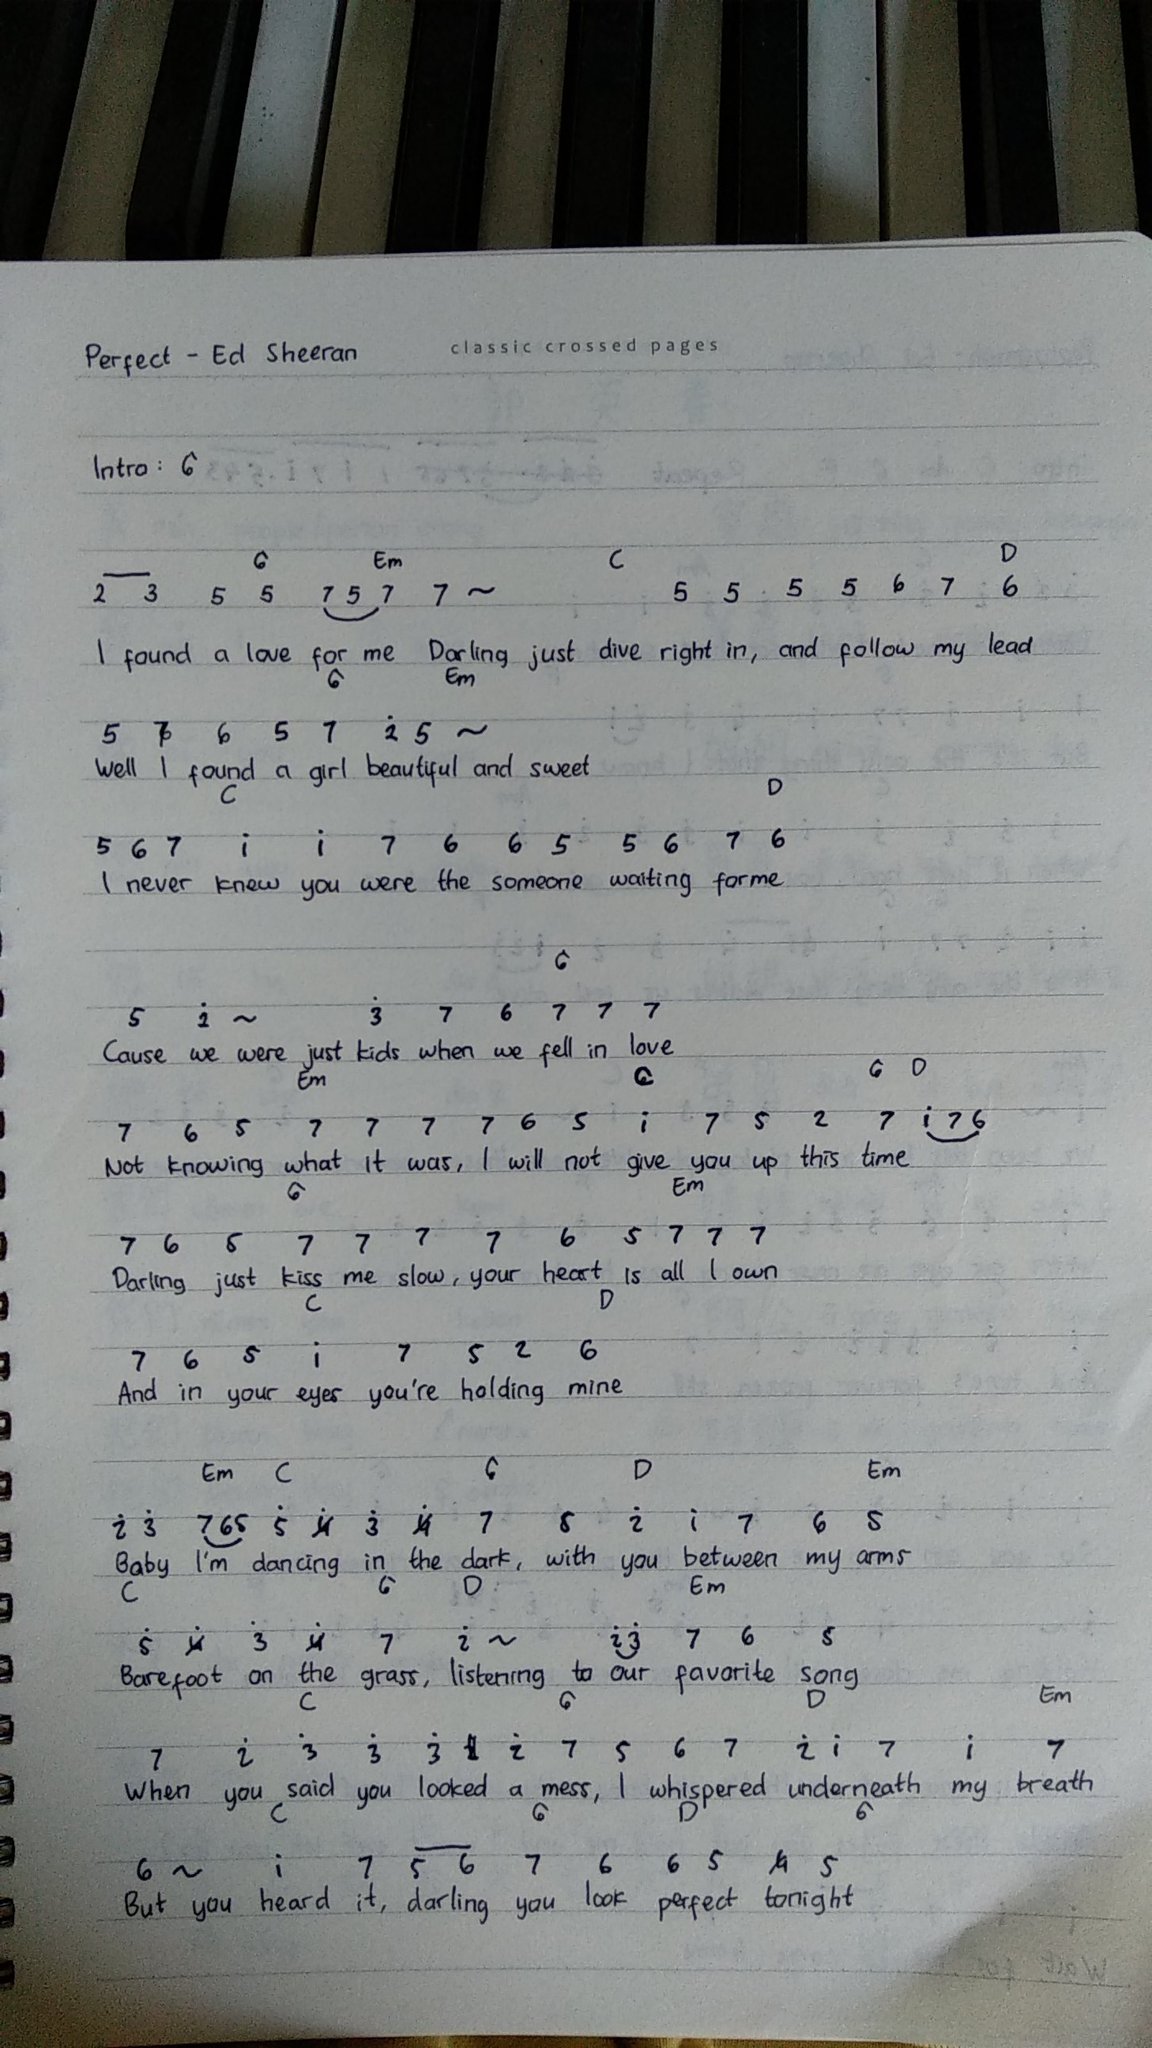 Perfect - Ed Sheeran
classic crossed pages
Intro : G
G Em C D
2 3 5 5 7 5 7 7 ~ 5 5 5 5 6 7 6
I found a love for me Darling just dive right in, and follow my lead
G Em
5 6 5 7 5 ~
Well I found a girl beautiful and sweet
C D
5 6 7 i i 7 6 6 5 5 6 7 6
I never knew you were the someone waiting forme
G
5 ~ 3̇ 7 6 7 7 7
Cause we were just kids when we fell in love
Em C G D
7 6 5 7 7 7 7 6 5 i 7 5 2 7 i 7 6
Not knowing what it was, I will not give you up this time
G Em
7 6 5 7 7 7 7 6 5 7 7 7
Darling just kiss me slow, your heart is all I own
C D
7 6 5 i 7 5 2 6
And in your eyes you're holding mine
Em C G D Em
2̇ 3̇ 7 6 5 5̇ 4̸̇ 3̇ 4̸̇ 7 5 2̇ i 7 6 5
Baby I'm dancing in the dark, with you between my arms
C G D Em
5̇ 4̸̇ 3̇ 4̸̇ 7 2̇ ~ 2̇ 3̇ 7 6 5
Barefoot on the grass, listening to our favorite song
C G D Em
7 2̇ 3̇ 3̇ 3̇ 2̇ 7 5 6 7 2̇ i 7 i 7
When you said you looked a mess, I whispered underneath my breath
C G D G
6 ~ i 7 5 6 7 6 6 5 4̸ 5
But you heard it, darling you look perfect tonight